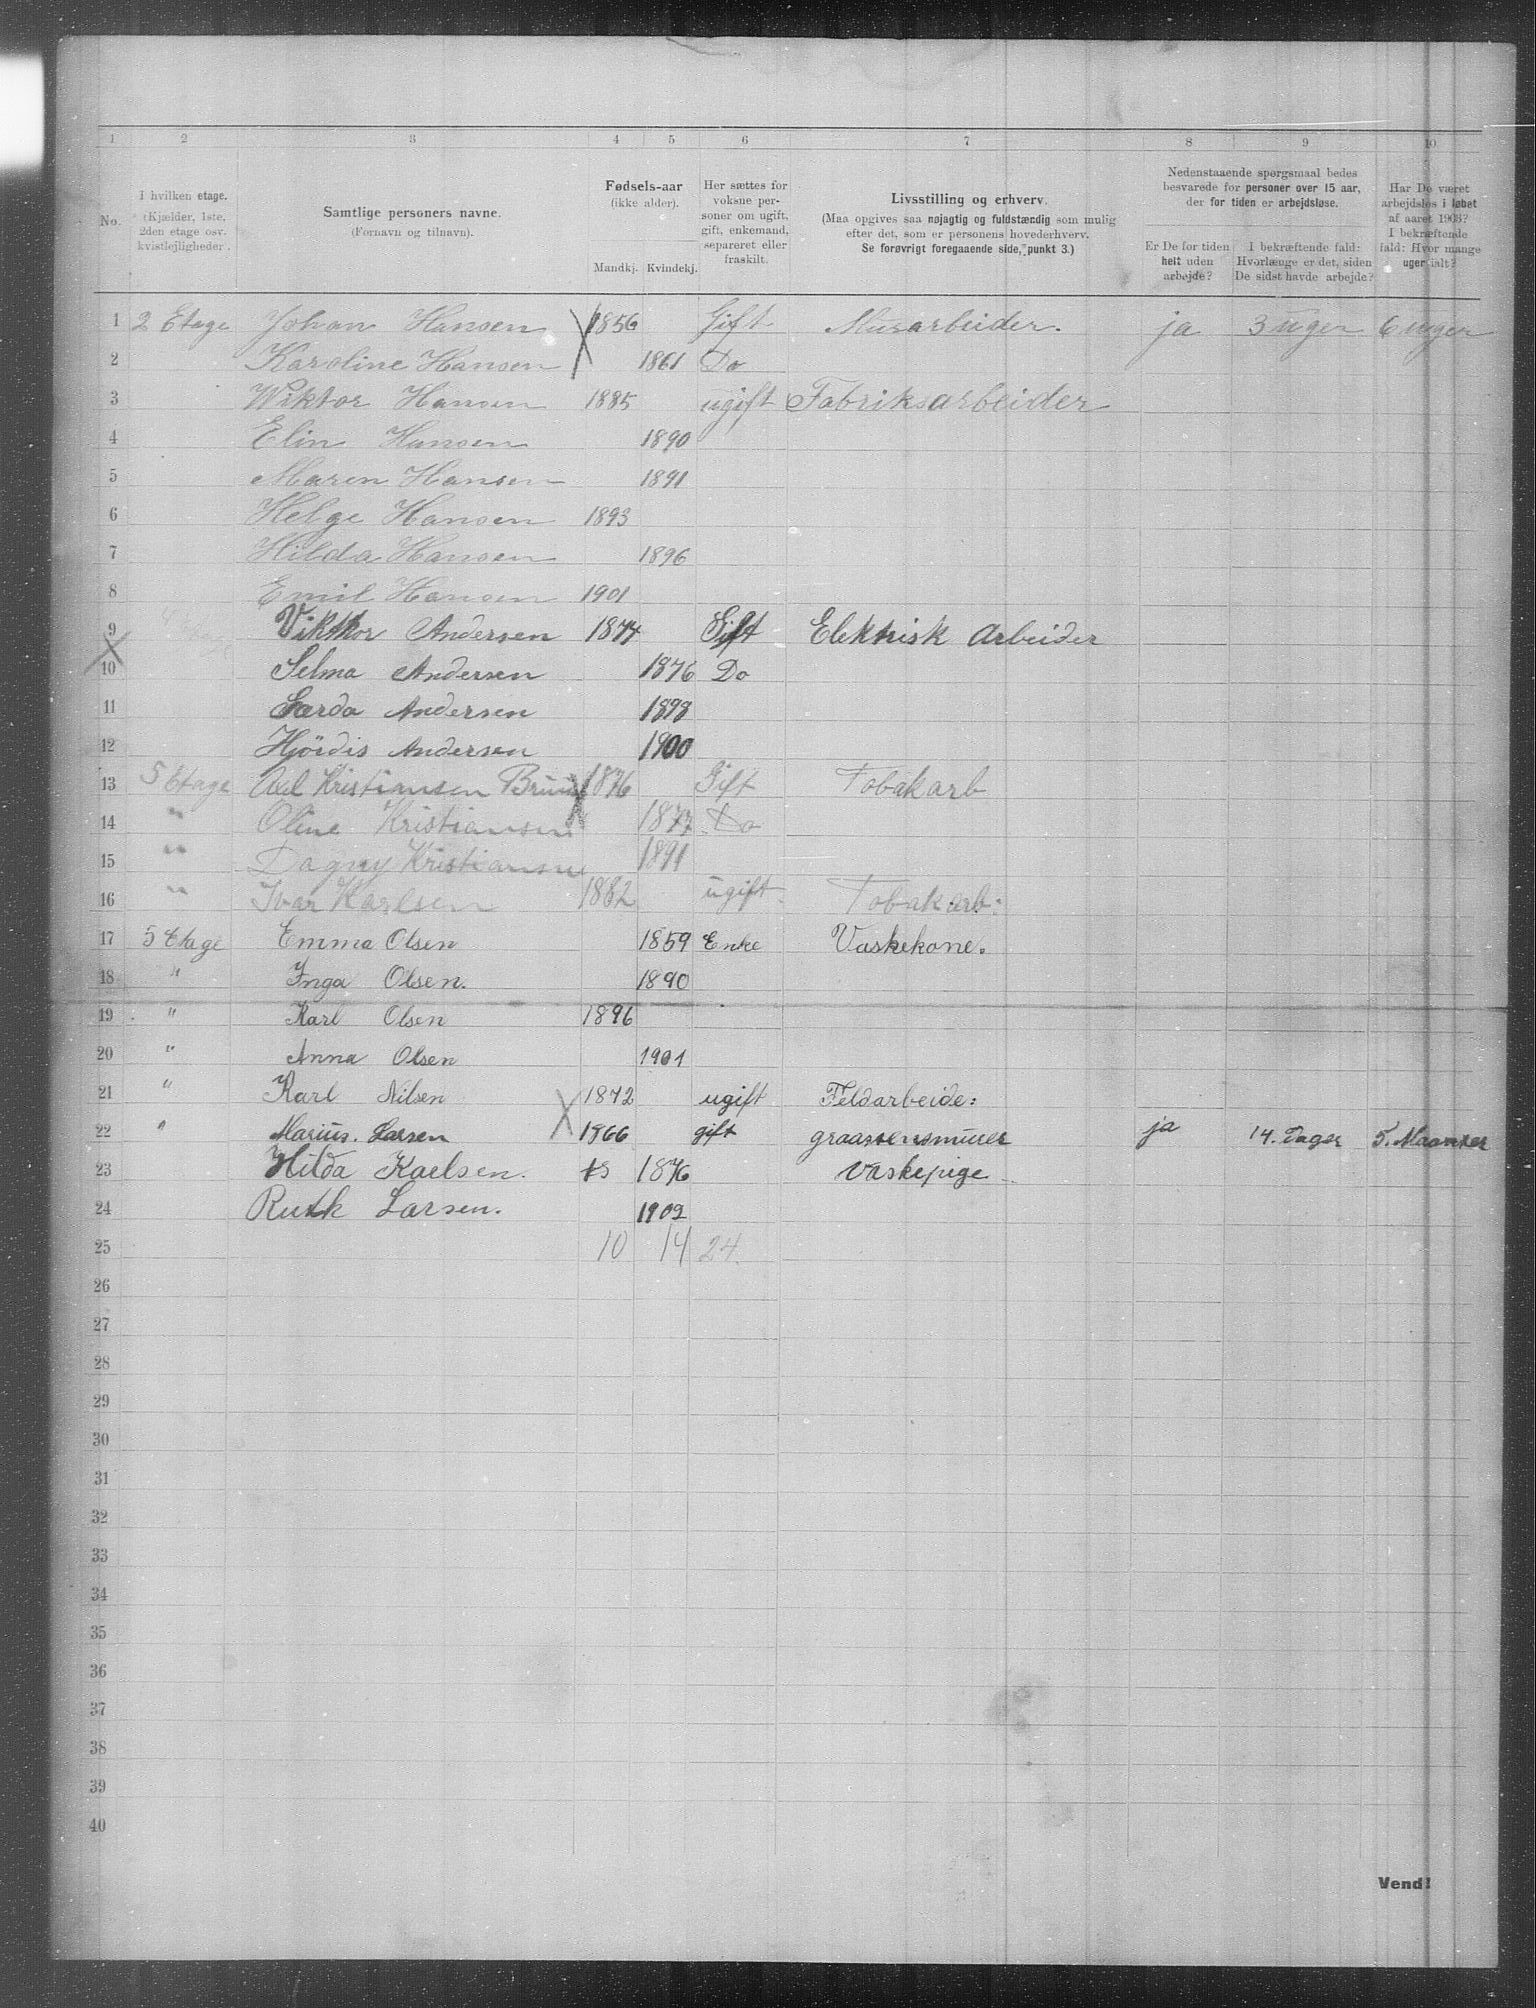 1 2 3 4 5 6 7 8 9 10
No.
I hvilken etage.
(Kjælder, 1ste,
2den etage osv.
kvistlejligheder.
Samtlige personers navne.
(Fornavn og tilnavn).
Fødsels-aar
(ikke alder).
Mandkj. Kvindekj.
Her sættes for
voksne per-
soner om ugift,
gift, enkemand,
separeret eller
fraskilt.
Livsstilling og erhverv.
(Maa opgives saa nøjagtig og fuldstændig som mulig
efter det, som er personens hovederhverv.
Se forøvrigt foregaaende side, punkt 3.)
Nedenstaaende spørgsmaal bedes
besvarede for personer over 15 aar,
der for tiden er arbejdsløse.
Er De for tiden
helt uden
arbejde?
I bekræftende fald:
Hvorlænge er det, siden
De sidst havde arbejde?
Har De været
arbejdsløs i løbet
af aaret 1903?
I bekræftende
fald: Hvor mange
uger ialt?
1 2 Etage Johan Hansen 1856 Gift Murarbeider. ja 3 uger 6 uger
2 Karoline Hansen 1861 Do
3 Wiktor Hansen 1885 ugift Fabriksarbeider
4 Elin Hansen 1890
5 Maren Hansen 1891
6 Helge Hansen 1893
7 Hilda Hansen 1896
8 Emil Hansen 1901
9 Vikktor Andersen 1877 Gift Elektrisk Arbeider
10 Selma Andersen 1876 Do
11 Gerda Andersen 1898
12 Hjördis Andersen 1900
13 5 Etage Kristiansen 1876 Gift Tobakarb
14 " Oline Kristiansen 1877 Do
15 " Dagny Kristiansen 1891
16 " Ivar Karlsen 1882 ugift Tobakarb:
17 5 Etage Emma Olsen 1859 Enke Vaskekone.
18 " Inga Olsen. 1890
19 " Karl Olsen 1896
20 " Anna Olsen 1901
21 " Karl Nilsen 1872 ugift Feldarbeide:
22 " Marius. Larsen 1866 gift graastensmurer ja 14. Dager 5. Maaneder
23 Hilda Karlsen. 1876 Vaskepige
24 Ruth Larsen. 1902
25 10 14 24.
26
27
28
29
30
31
32
33
34
35
36
37
38
39
40
Vend!